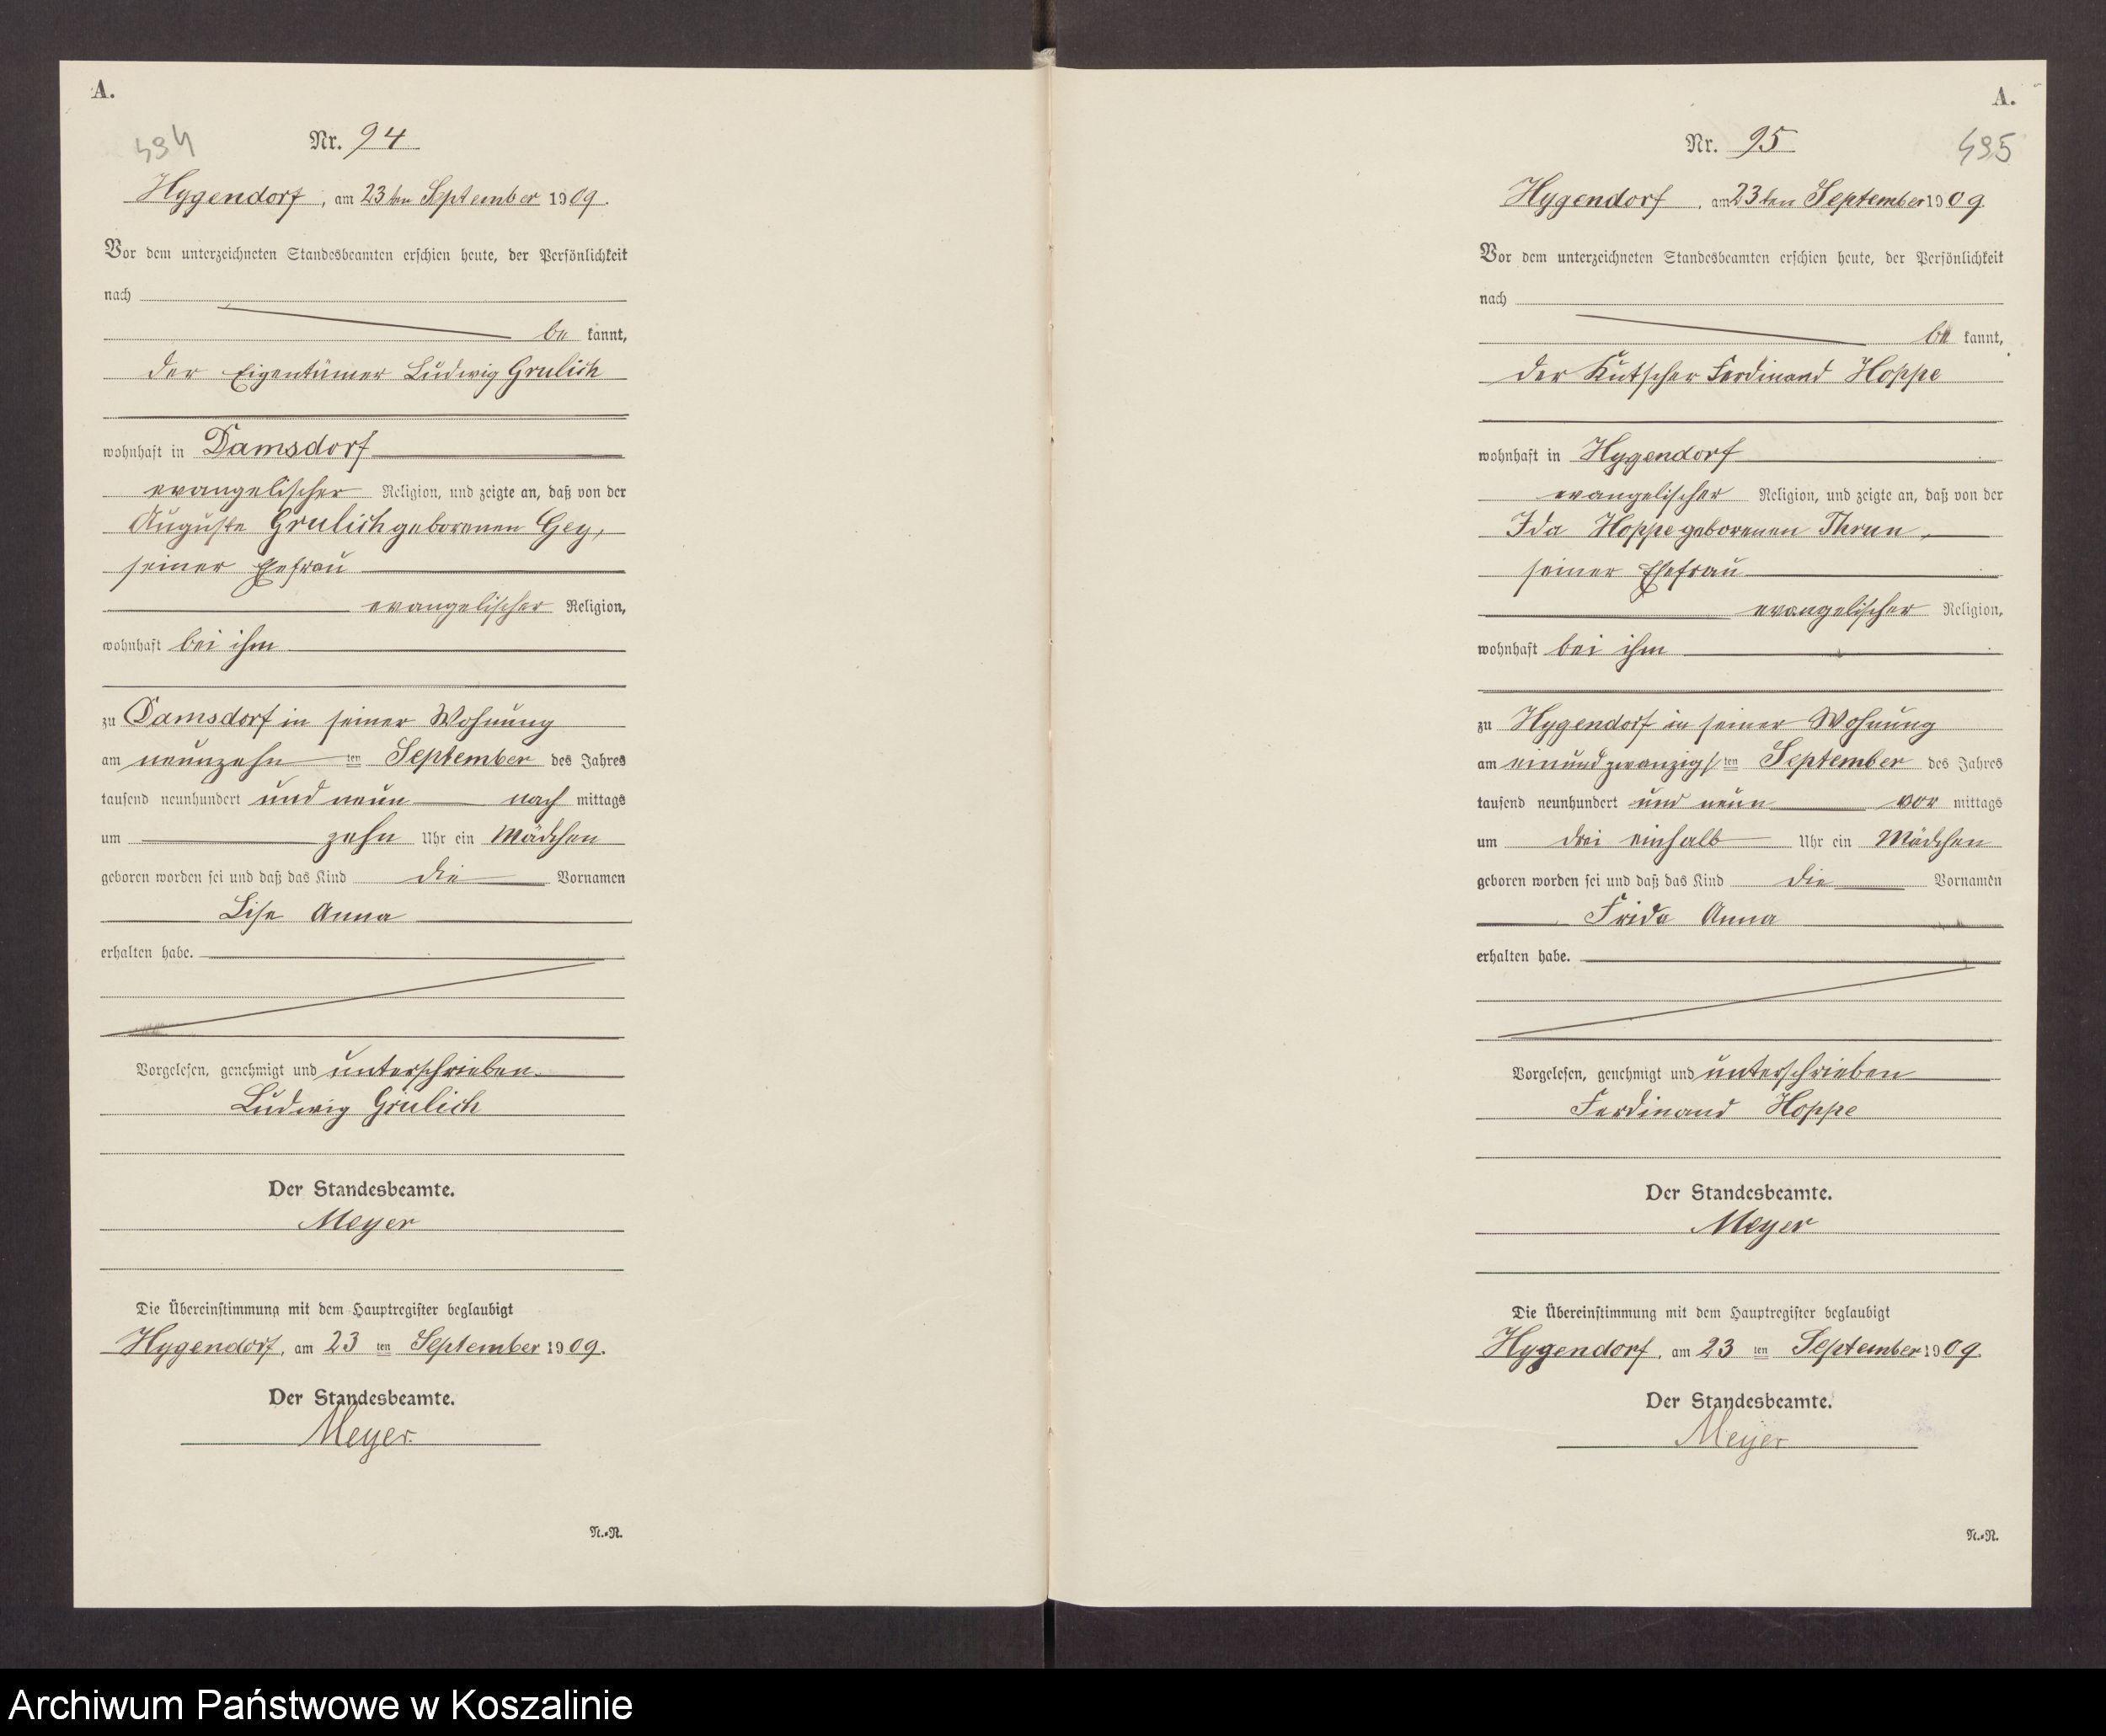 A.
494
Nr. 94
Hygendorf, am 23ten September 1909.
Vor dem unterzeichneten Standesbeamten erschien heute, der Persönlichkeit
nach
be kannt,
der Eigentümer Ludwig Grulich
wohnhaft in Damsdorf
evangelischer Religion, und zeigte an, daß von der
Auguste Grulich geborenen Gey,
seiner Ehefrau
evangelischer Religion,
wohnhaft bei ihm
zu Damsdorf in seiner Wohnung
am neunzehn ten September des Jahres
tausend neunhundert und neun nach mittags
um zehn Uhr ein Mädchen
geboren worden sei und daß das Kind die Vornamen
Lise Anna
erhalten habe.
Vorgelesen, genehmigt und unterschrieben.
Ludwig Grulich
Der Standesbeamte.
Meyer
Die Übereinstimmung mit dem Hauptregister beglaubigt
Hygendorf, am 23 ten September 1909.
Der Standesbeamte.
Meyer.
N.-N.
A.
495
Nr. 95
Hygendorf, am 23ten September 1909
Vor dem unterzeichneten Standesbeamten erschien heute, der Persönlichkeit
nach
be kannt,
der Kutscher Ferdinand Hoppe
wohnhaft in Hygendorf
evangelischer Religion, und zeigte an, daß von der
Ida Hoppe geborenen Thrun,
seiner Ehefrau
evangelischer Religion,
wohnhaft bei ihm
zu Hygendorf in seiner Wohnung
am einundzwanzigs ten September des Jahres
tausend neunhundert und neun vor mittags
um drei einhalb Uhr ein Mädchen
geboren worden sei und daß das Kind die Vornamen
Frida Anna
erhalten habe.
Vorgelesen, genehmigt und unterschrieben
Ferdinand Hoppe
Der Standesbeamte.
Meyer
Die Übereinstimmung mit dem Hauptregister beglaubigt
Hygendorf, am 23 ten September 1909.
Der Standesbeamte.
Meyer
N.-N.
Archiwum Państwowe w Koszalinie